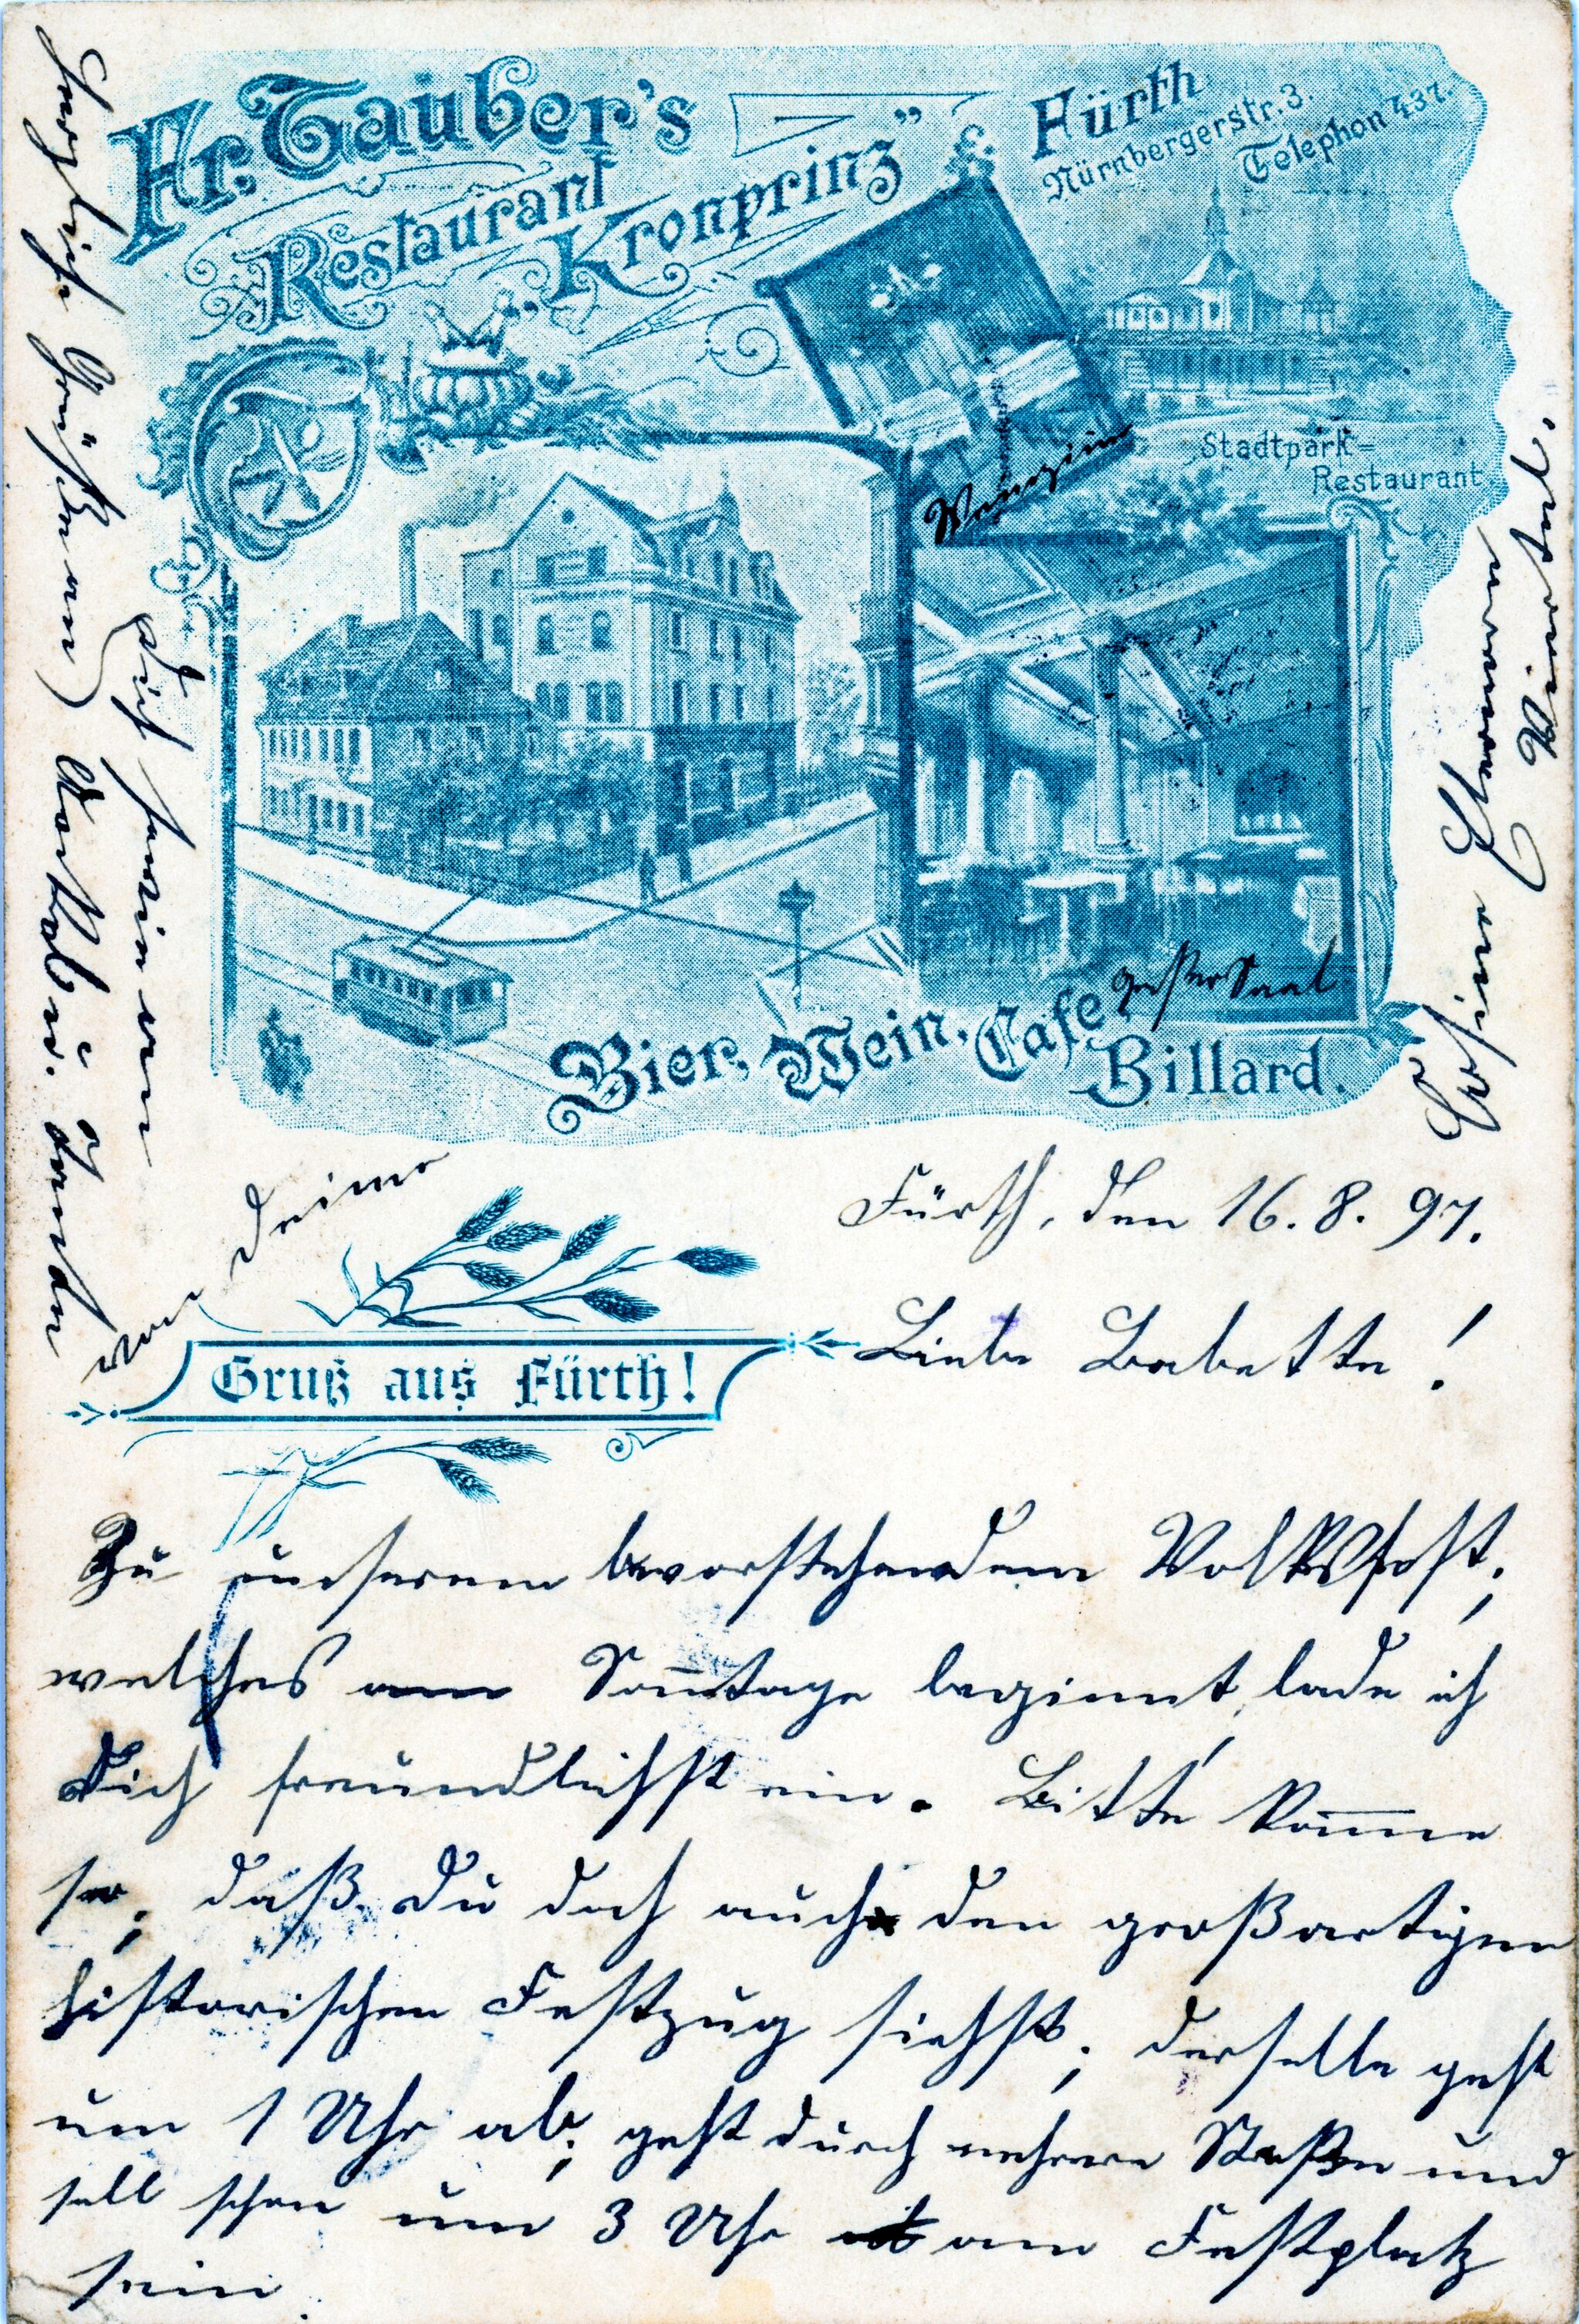 Fr. Tauber's
Restaurant
„Kronprinz”
Fürth
Nürnbergerstr. 3.
Telephon 437.
Stadtpark-
Restaurant
großer Saal
Bier, Wein, Cafe
Billard.
Gruß aus Fürth!
Fürth, den 16. 8. 97.
Liebe Babette!
Zu unserem bevorstehendem Volksfest,
welches am Sonntage beginnt, lade ich
Dich freundlichst ein. Bitte komme
ja, daß Du doch auch den großartigen
historischen Festzug siehst; derselbe geht
um 1 Uhr ab, geht durch mehrere Straßen und
soll schon um 3 Uhr am Festplatz
sein.
Herzliche Grüße an
von Deiner